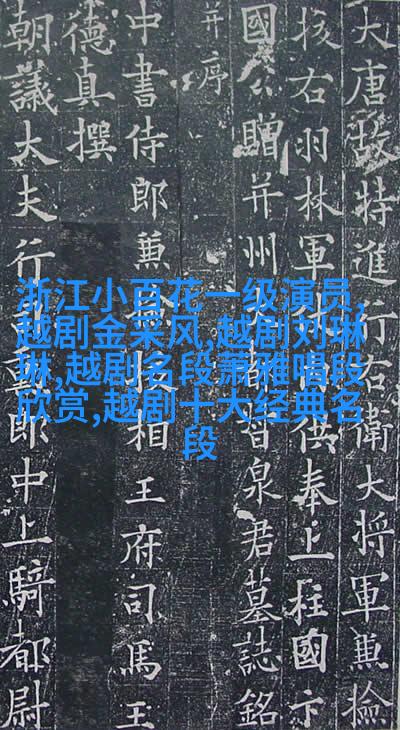 大唐故特進行右衛大將軍兼撿
挍右羽林軍供奉上柱國卞
國公贈并州大都督泉君墓誌銘
并序
中書侍郎兼檢校相王府司馬王
德真撰
朝議大夫行勳郎中上騎都尉
浙江小百花一级演员,
越剧金采风,越剧刘琳
琳,越剧名段萧雅唱段
欣赏,越剧十大经典名
段